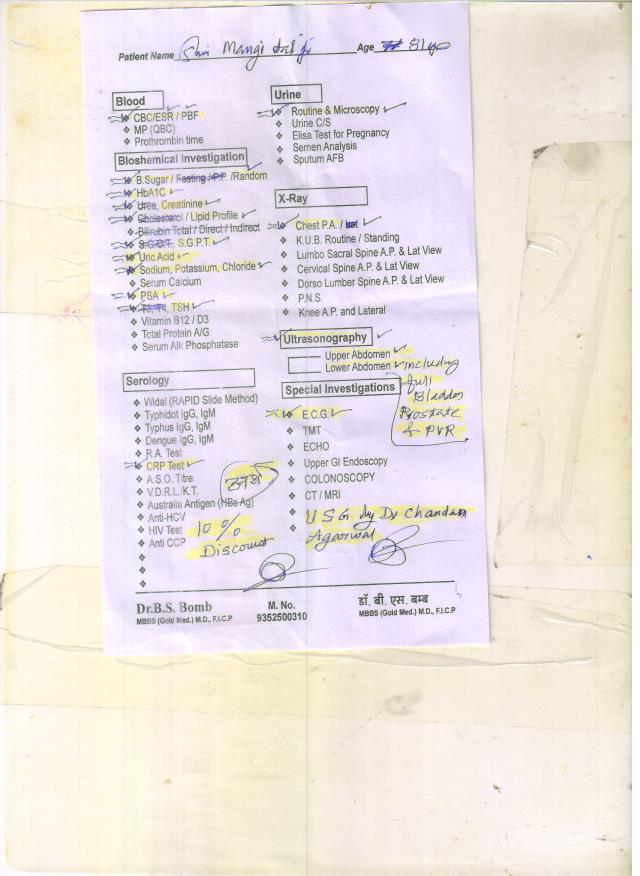 Patient Name Shri Mangi Lal ji Age 81 yo
Blood
CBC/ESR / PBF
MP (QBC)
Prothrombin time
Bioshemical Investigation
B.Sugar / Fasting / P.P. /Random
HbA1C
Urea, Creatinine
Cholesterol / Lipid Profile
Bilirubin Total / Direct / Indirect
S.G.O.T. S.G.P.T.
Uric Acid
Sodium, Potassium, Chloride
Serum Calcium
PSA
T3, T4, TSH
Vitamin B12 / D3
Total Protein A/G
Serum Alk Phosphatase
Serology
Widal (RAPID Slide Method)
Typhidot IgG, IgM
Typhus IgG, IgM
Dengue IgG, IgM
R.A. Test
CRP Test
A.S.O. Titre
V.D.R.L./K.T.
Australia Antigen (HBs Ag)
Anti-HCV
HIV Test
Anti CCP
10 %
Discount
Urine
Routine & Microscopy
Urine C/S
Elisa Test for Pregnancy
Semen Analysis
Sputum AFB
X-Ray
Chest P.A. / lat
K.U.B. Routine / Standing
Lumbo Sacral Spine A.P. & Lat View
Cervical Spine A.P. & Lat View
Dorso Lumber Spine A.P. & Lat View
P.N.S.
Knee A.P. and Lateral
Ultrasonography
Upper Abdomen
Lower Abdomen including
full
Bladder
Prostate
& PVR
Special Investigations
E.C.G.
TMT
ECHO
Upper GI Endoscopy
COLONOSCOPY
CT / MRI
USG by Dr Chandan
Agarwal
Dr.B.S. Bomb
MBBS (Gold Med.) M.D., F.I.C.P
M. No.
9352500310
डॉ. बी. एस. बम्ब
MBBS (Gold Med.) M.D., F.I.C.P